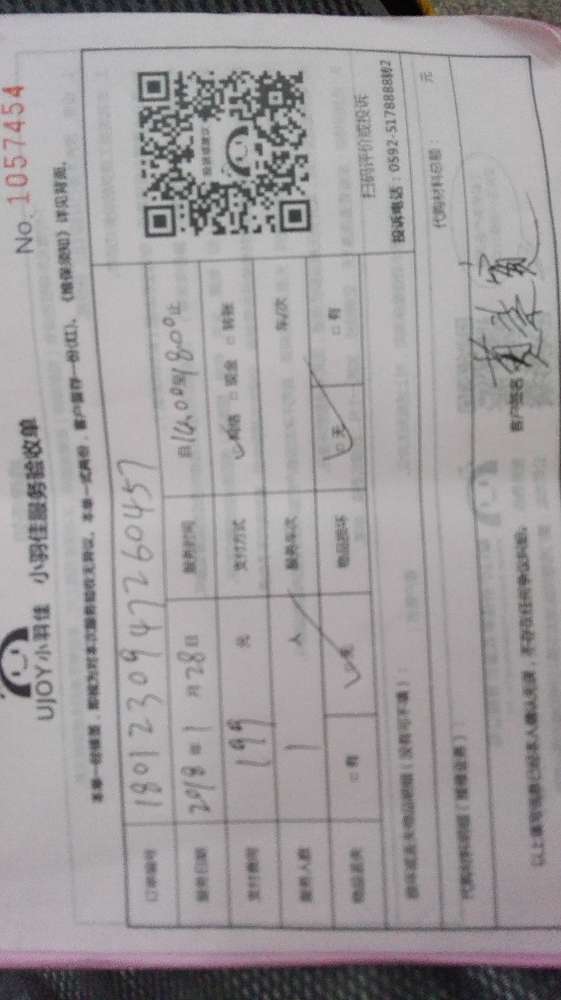 No. 1057454
UJOY小羽佳 小羽佳服务验收单
本单一经填签，即视为对本次服务验收无异议。本单一式两份，客户留存一份(红)。《维保须知》详见背面。
订单编号 1801230947260457
服务日期 2018年1月28日 服务时间 自14:00至18:00止
支付费用 199元 支付方式 ☑网络 □现金 □转账
服务人数 1人 服务车次 车/次
物品丢失 □有 ☑无 物品损坏 ☑无 □有
投诉或建议
扫码评价或投诉
投诉电话：0592-5178888转2
损坏或丢失物品明细（没有可不填）：
代购材料明细（维修业务）： 代购材料总额： 元
以上填写信息已经本人确认无误，不存在任何争议纠纷。 客户签名